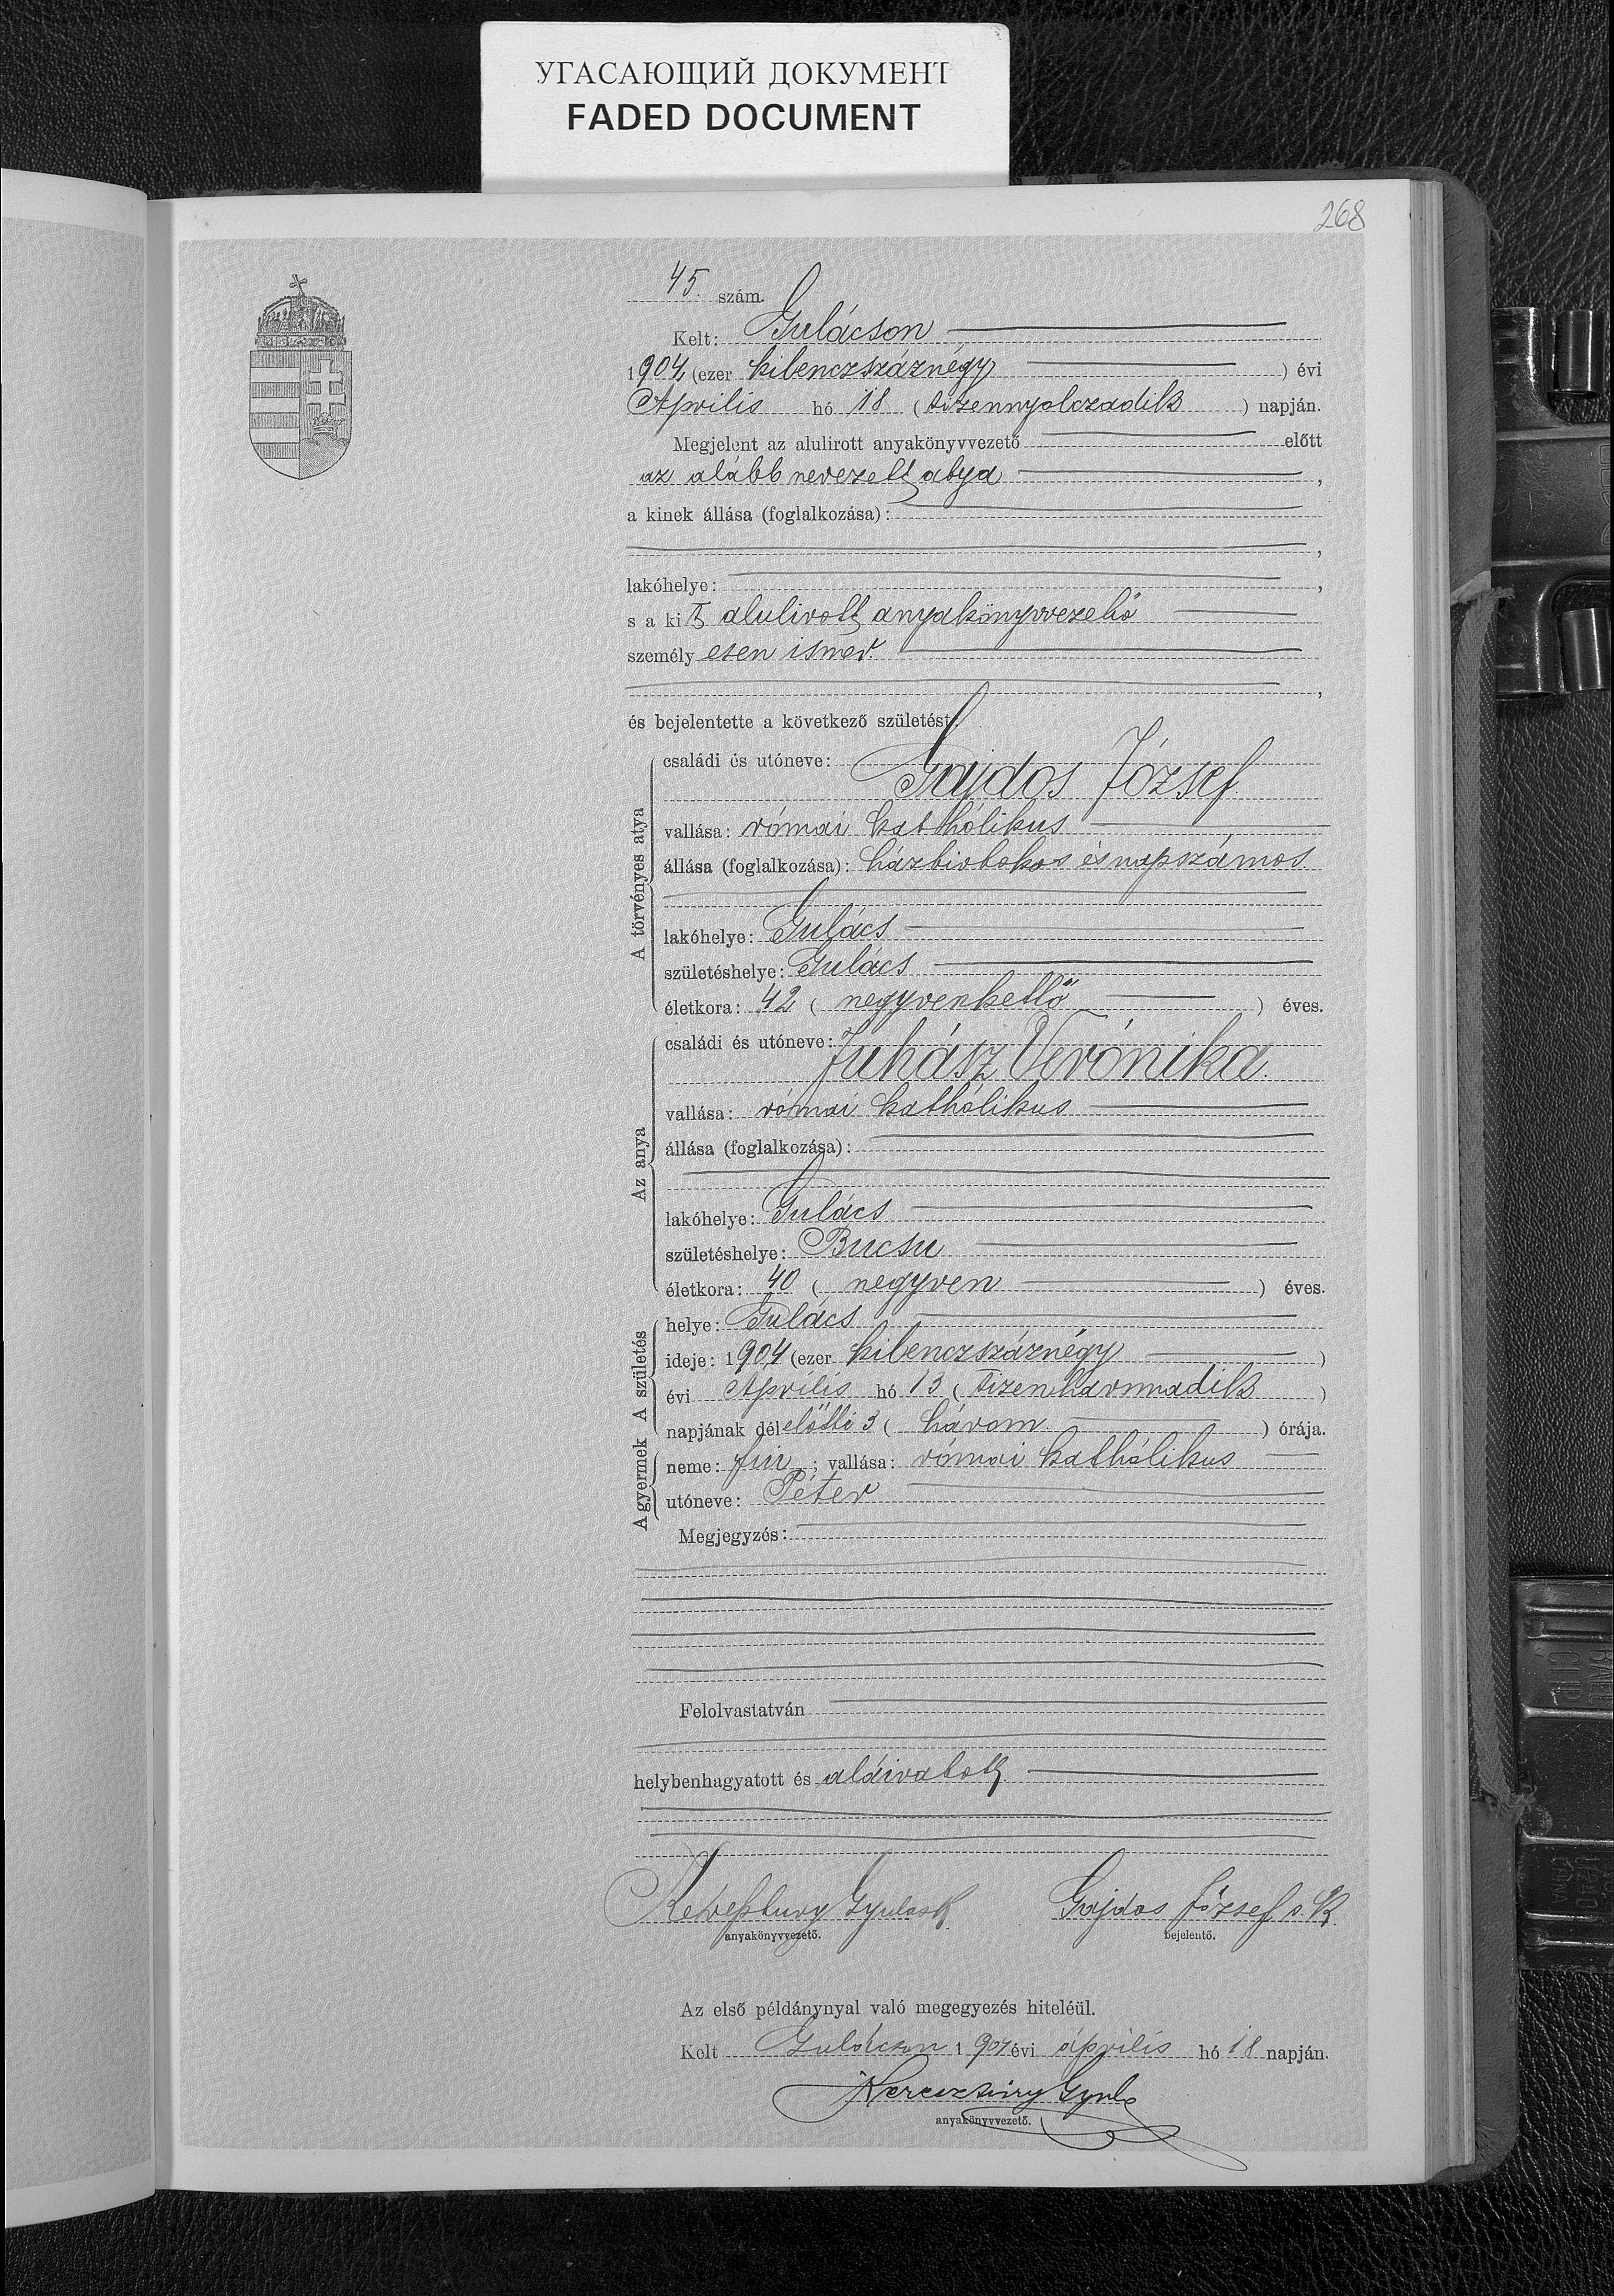 УГАСАЮЩИЙ ДОКУМЕНТ
FADED DOCUMENT
268
45 szám.
Kelt: Gulácson
1904 (ezer kilenczszáznégy ) évi
Április hó 18 (tizennyolczadik ) napján.
Megjelent az alulirott anyakönyvvezető előtt
az alább nevezett atya ,
a kinek állása (foglalkozása):
,
lakóhelye: ,
s a kit alulirott anyakönyvvezető
személyesen ismer.
,
és bejelentette a következő születést:
A törvényes atya
családi és utóneve:
Gajdos József.
vallása: római kathólikus
állása (foglalkozása): házbirtokos és napszámos.
lakóhelye: Gulács
születéshelye: Gulács
életkora: 42 ( negyvenkettő ) éves.
Az anya
családi és utóneve:
Juhász Verónika.
vallása: római kathólikus
állása (foglalkozása):
lakóhelye: Gulács
születéshelye: Bucsu
életkora: 40 ( negyven ) éves.
A születés
helye: Gulács
ideje: 1904 (ezer kilenczszáznégy )
évi Április hó 13 ( tizenharmadik )
napjának délelőtti 3 ( három ) órája.
A gyermek
neme: fiú ; vallása: római kathólikus
utóneve: Péter
Megjegyzés:
Felolvastatván
helybenhagyatott és aláiratott
Gyula sk Gajdos József s. k.
anyakönyvvezető. bejelentő.
Az első példánynyal való megegyezés hiteléül.
Kelt Gulácson 1904 évi április hó 18 napján.
Keresztury Gyula
anyakönyvvezető.